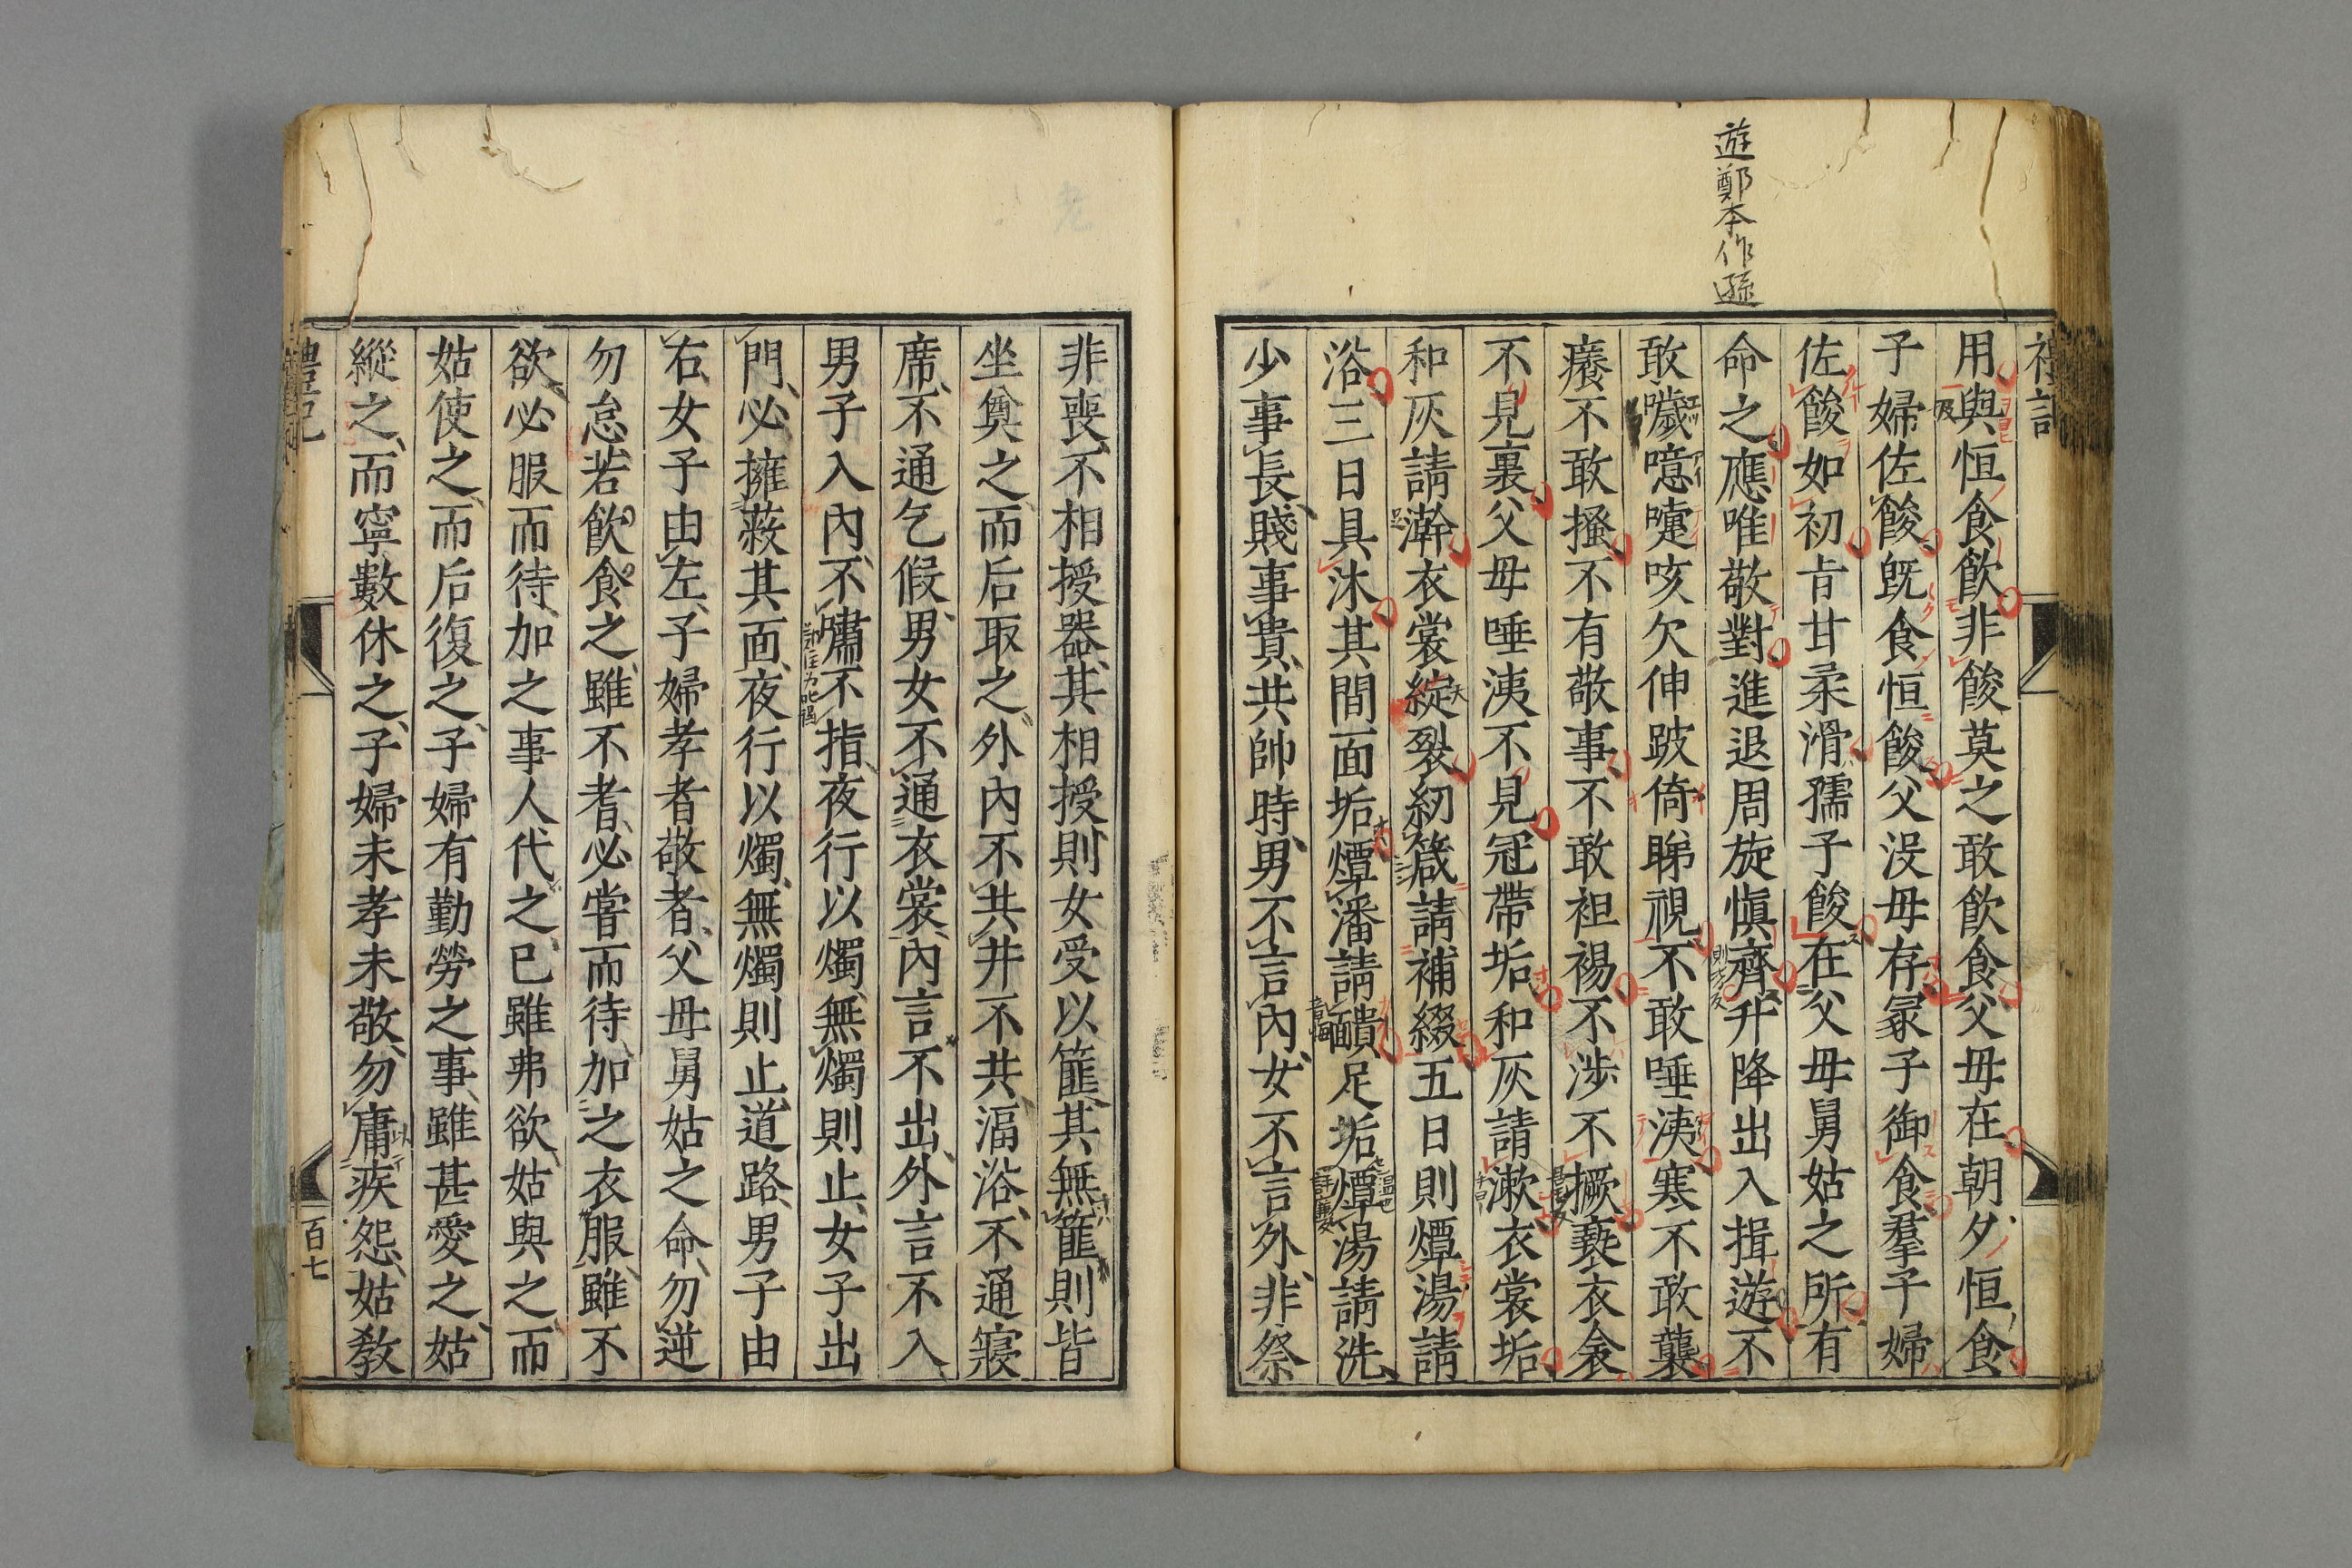 遊鄭本作遜
禮記
用與恒食飲非餕莫之敢飲食父母在朝夕恒食
子婦佐餕既食恒餕父沒母存冢子御食羣子婦
佐餕如初旨甘柔滑孺子餕在父母舅姑之所有
命之應唯敬對進退周旋愼齊升降出入揖遊不
敢噦噫嚏咳欠伸跛倚睇視不敢唾洟寒不敢襲
癢不敢搔不有敬事不敢袒裼不涉不撅褻衣衾
不見裏父母唾洟不見冠帶垢和灰請漱衣裳垢
和灰請澣衣裳綻裂紉箴請補綴五日則燂湯請
浴三日具沐其間面垢燂潘請靧足垢燂湯請洗
少事長賤事貴共帥時男不言內女不言外非祭
非喪不相授器其相授則女受以篚其無篚則皆
坐奠之而后取之外內不共井不共湢浴不通寢
席不通乞假男女不通衣裳內言不出外言不入
男子入內不嘯不指夜行以燭無燭則止女子出
門必擁蔽其面夜行以燭無燭則止道路男子由
右女子由左子婦孝者敬者父母舅姑之命勿逆
勿怠若飲食之雖不耆必嘗而待加之衣服雖不
欲必服而待加之事人代之已雖弗欲姑與之而
姑使之而后復之子婦有勤勞之事雖甚愛之姑
縱之而寧數休之子婦未孝未敬勿庸疾怨姑教
禮記
百七